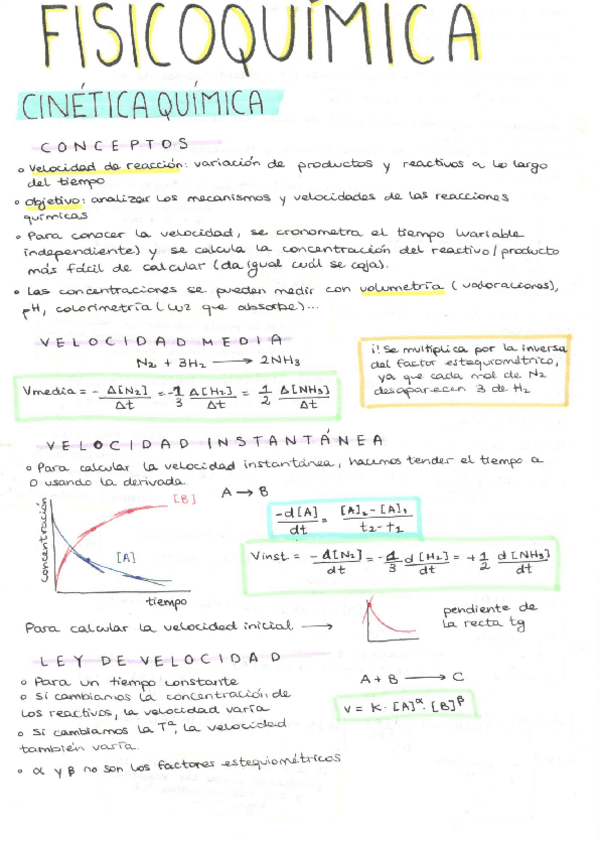 FISICOQUÍMICA
CINÉTICA QUÍMICA
CONCEPTOS
• Velocidad de reacción: variación de productos y reactivos a lo largo
del tiempo
• Objetivo: analizar los mecanismos y velocidades de las reacciones
químicas
• Para conocer la velocidad, se cronometra el tiempo (variable
independiente) y se calcula la concentración del reactivo/producto
más fácil de calcular (da igual cuál se coja).
• Las concentraciones se pueden medir con volumetría (valoraciones),
pH, colorimetría (luz que absorbe)...
VELOCIDAD MEDIA
N2 + 3H2 ⟶ 2NH3
Vmedia = - Δ[N2]/Δt = - 1/3 Δ[H2]/Δt = 1/2 Δ[NH3]/Δt
¡! Se multiplica por la inversa
del factor estequiométrico,
ya que cada mol de N2
desaparecen 3 de H2
VELOCIDAD INSTANTÁNEA
• Para calcular la velocidad instantánea, hacemos tender el tiempo a
0 usando la derivada.
A → B
concentración
[B]
[A]
tiempo
-d[A]/dt = [A]2 - [A]1/t2 - t1
Vinst. = - d[N2]/dt = - 1/3 d[H2]/dt = + 1/2 d[NH3]/dt
Para calcular la velocidad inicial ⟶
pendiente de
la recta tg
LEY DE VELOCIDAD
• Para un tiempo constante
• Si cambiamos la concentración de
los reactivos, la velocidad varía
• Si cambiamos la Tª, la velocidad
también varía.
• α y β no son los factores estequiométricos
A + B ⟶ C
v = K · [A]^α · [B]^β